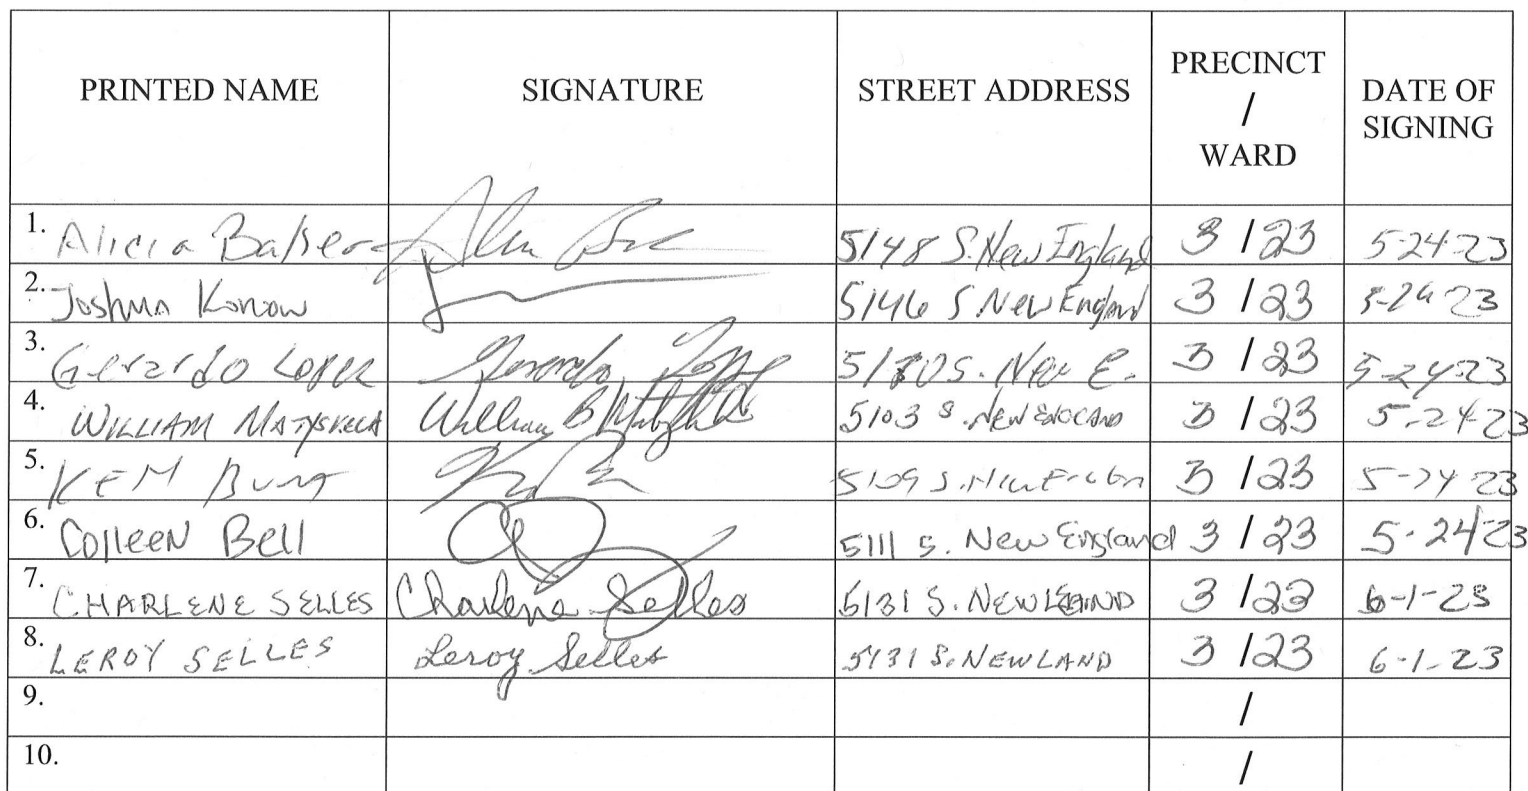 PRINTED NAME SIGNATURE STREET ADDRESS PRECINCT / WARD DATE OF SIGNING
1. Alicia 5148 S. New England 3 / 23 5-24-23
2. Joshua Konow 5146 S. New England 3 / 23 23
3. Gerardo Lopez Gerardo Lopez S. New E. 3 / 23 5-24-23
4. WILLIAM William B 5103 S. NEW ENGLAND 3 / 23 5-24-23
5. KEM 5109 S. 3 / 23 5-24-23
6. Colleen Bell 5111 S. New England 3 / 23 5-24-23
7. CHARLENE SELLES Charlene Selles 5131 S. 3 / 23 6-1-23
8. LEROY SELLES Leroy Selles 5131 S. NEWLAND 3 / 23 6-1-23
9. /
10. /